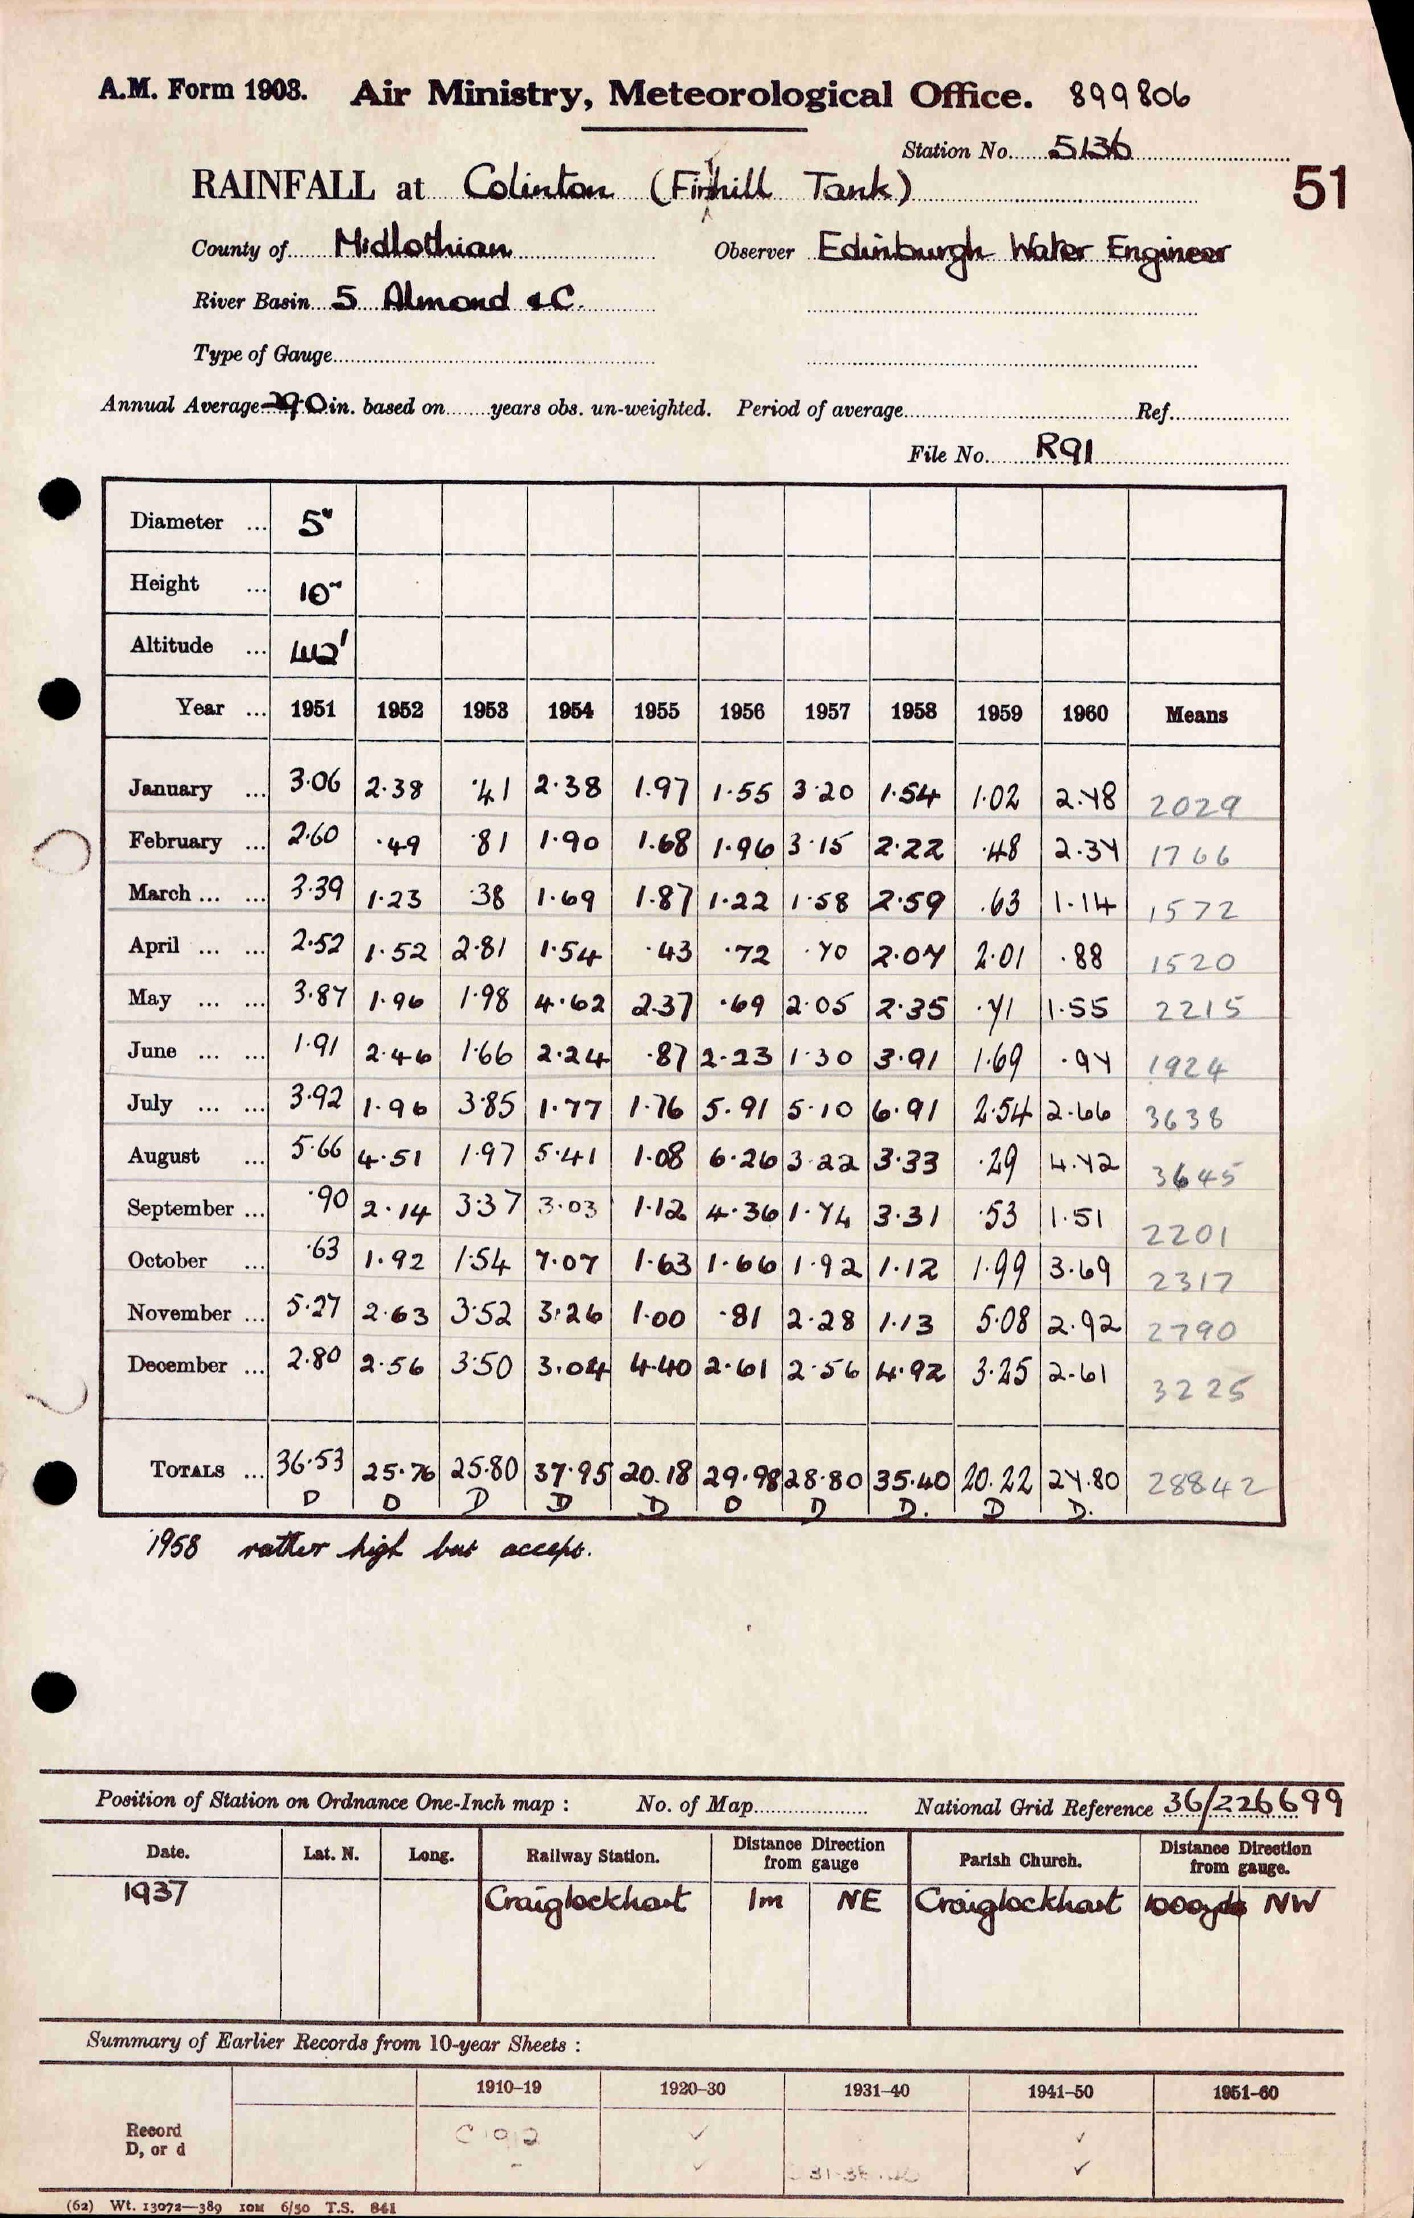 A.M. Form 1903. Air Ministry, Meteorological Office. 899806
Station No. 5136
RAINFALL at Colinton (Firhill Tank) 51
County of Midlothian Observer Edinburgh Water Engineer
River Basin 5 Almond &C.
Type of Gauge
Annual Average 29.0 in. based on years obs. un-weighted. Period of average Ref.
File No. R91
Diameter ... 5"
Height ... 10"
Altitude ... 442'
Year ... 1951 1952 1953 1954 1955 1956 1957 1958 1959 1960 Means
January ... 3.06 2.38 .41 2.38 1.97 1.55 3.20 1.54 1.02 2.78 2029
February ... 2.60 .49 .81 1.90 1.68 1.96 3.15 2.22 .48 2.37 1766
March ... ... 3.39 1.23 .38 1.69 1.87 1.22 1.58 2.59 .63 1.14 1572
April ... ... 2.52 1.52 2.81 1.54 .43 .72 .70 2.07 2.01 .88 1520
May ... ... 3.87 1.96 1.98 4.62 2.37 .69 2.05 2.35 .71 1.55 2215
June ... ... 1.91 2.46 1.66 2.24 .87 2.23 1.30 3.91 1.69 .97 1924
July ... ... 3.92 1.96 3.85 1.77 1.76 5.91 5.10 6.91 2.54 2.66 3638
August ... 5.66 4.51 1.97 5.41 1.08 6.26 3.22 3.33 .29 4.72 3645
September ... .90 2.14 3.37 3.03 1.12 4.36 1.74 3.31 .53 1.51 2201
October ... .63 1.92 1.54 7.07 1.63 1.66 1.92 1.12 1.99 3.69 2317
November ... 5.27 2.63 3.52 3.26 1.00 .81 2.28 1.13 5.08 2.92 2790
December ... 2.80 2.56 3.50 3.04 4.40 2.61 2.56 4.92 3.25 2.61 3225
TOTALS ... 36.53 25.76 25.80 37.95 20.18 29.98 28.80 35.40 20.22 27.80 28842
D D D D D D D D. D D.
1958 rather high but accept.
Position of Station on Ordnance One-Inch map : No. of Map National Grid Reference 36/226699
Date. Lat. N. Long. Railway Station. Distance Direction from gauge Parish Church. Distance Direction from gauge.
1937 Craiglockhart 1m NE Craiglockhart 1000yds NW
Summary of Earlier Records from 10-year Sheets :
1910–19 1920–30 1931–40 1941–50 1951–60
Record
D, or d
(62) Wt. 13072—389 10M 6/50 T.S. 841